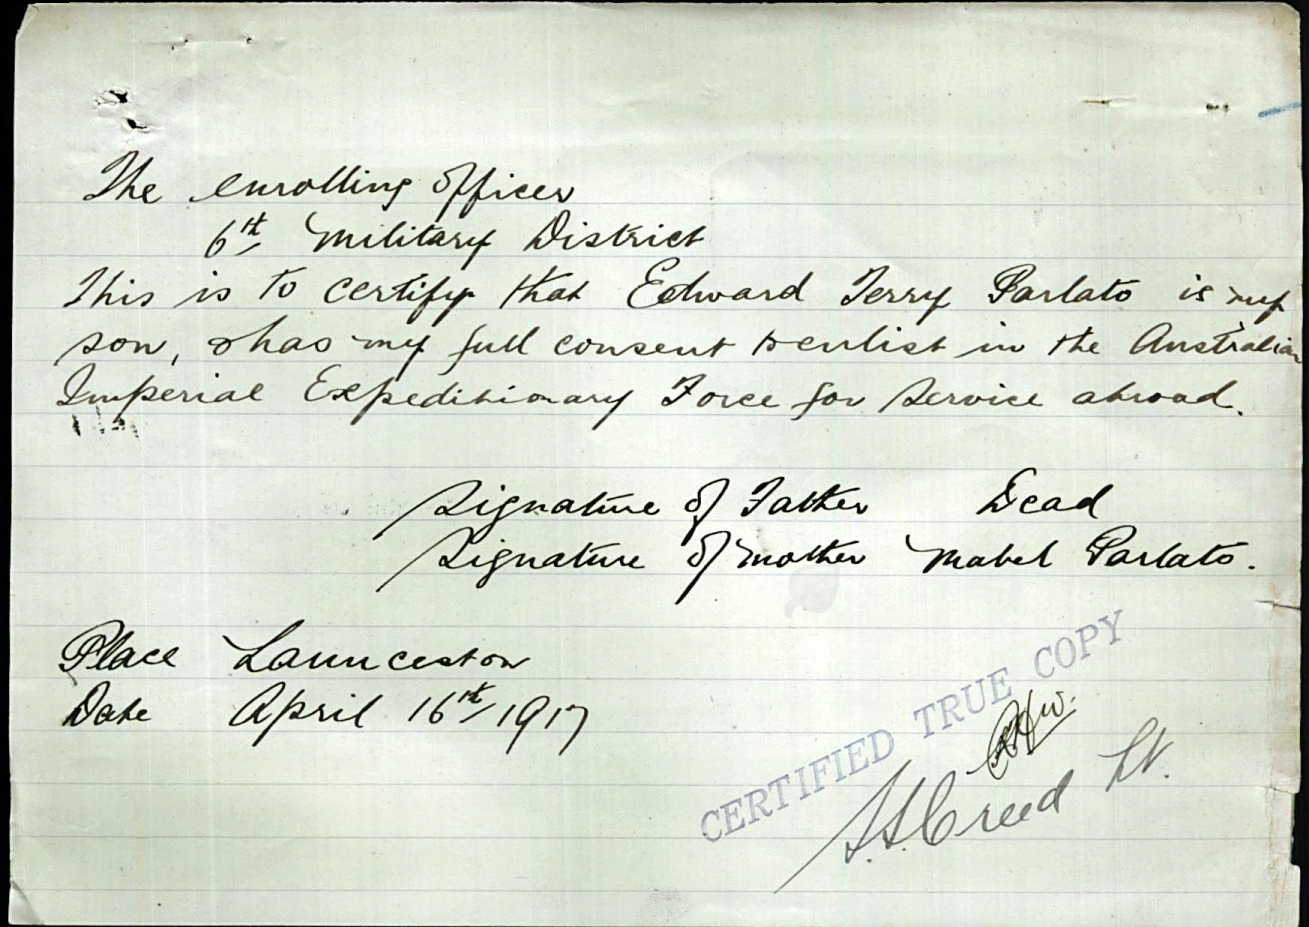 The enrolling Officer
6th Military District
This is to certify that Edward Terry Parlato is my
son, & has my full consent to enlist in the Australian
Imperial Expeditionary Force for Service abroad.
Signature of Father Dead
Signature of mother Mabel Parlato.
Place Launceston
Date April 16th/1917
CERTIFIED TRUE COPY
Creed Lt.